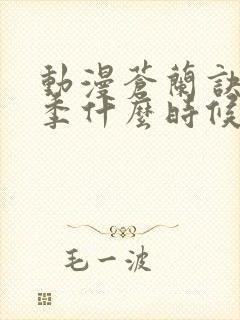 動漫蒼蘭訣
季什麼時候
毛一波